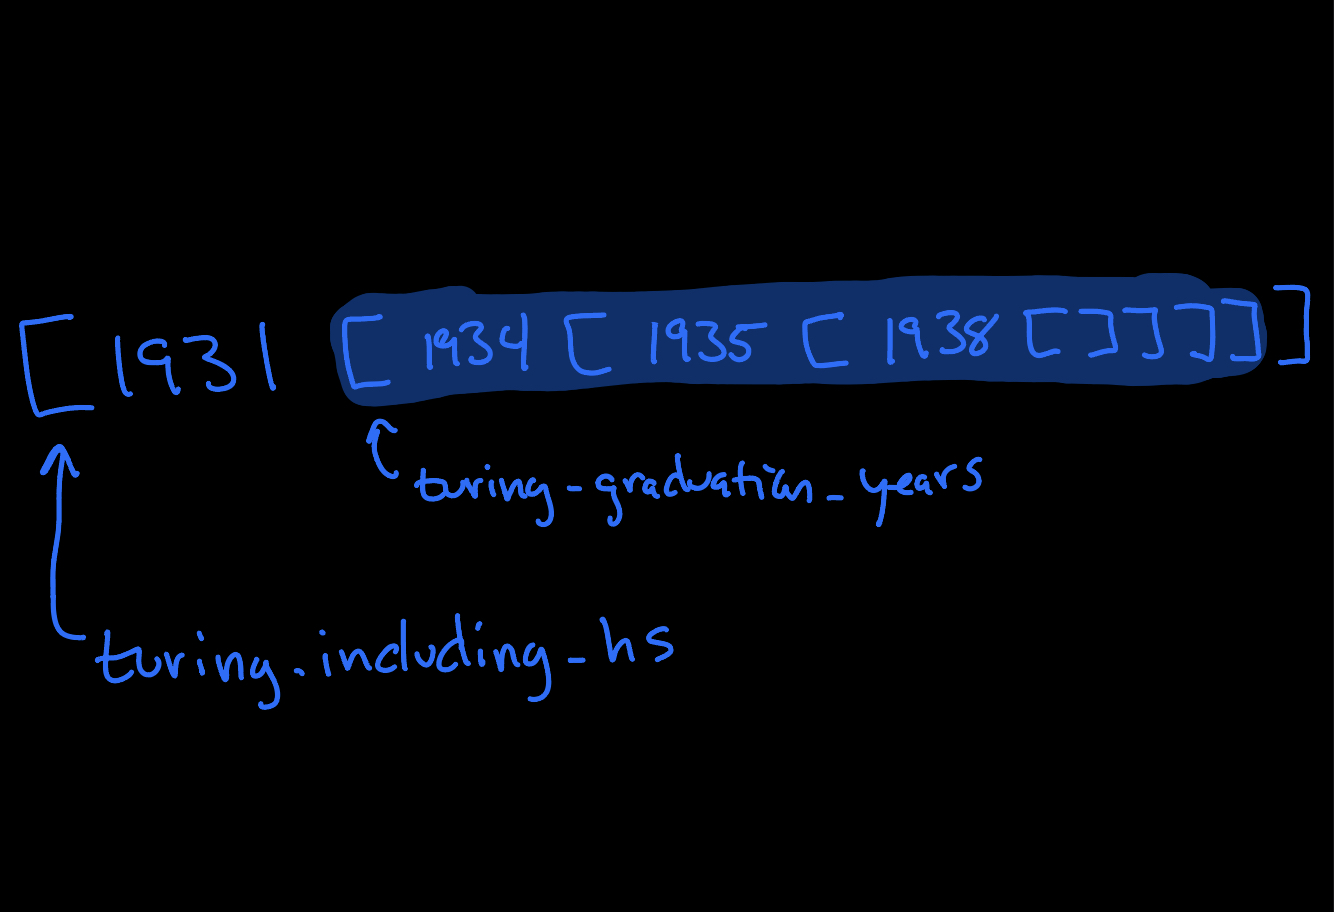 [ 1931 [ 1934 [ 1935 [ 1938 [ ] ] ] ] ]
turing_graduation_years
turing.including_hs